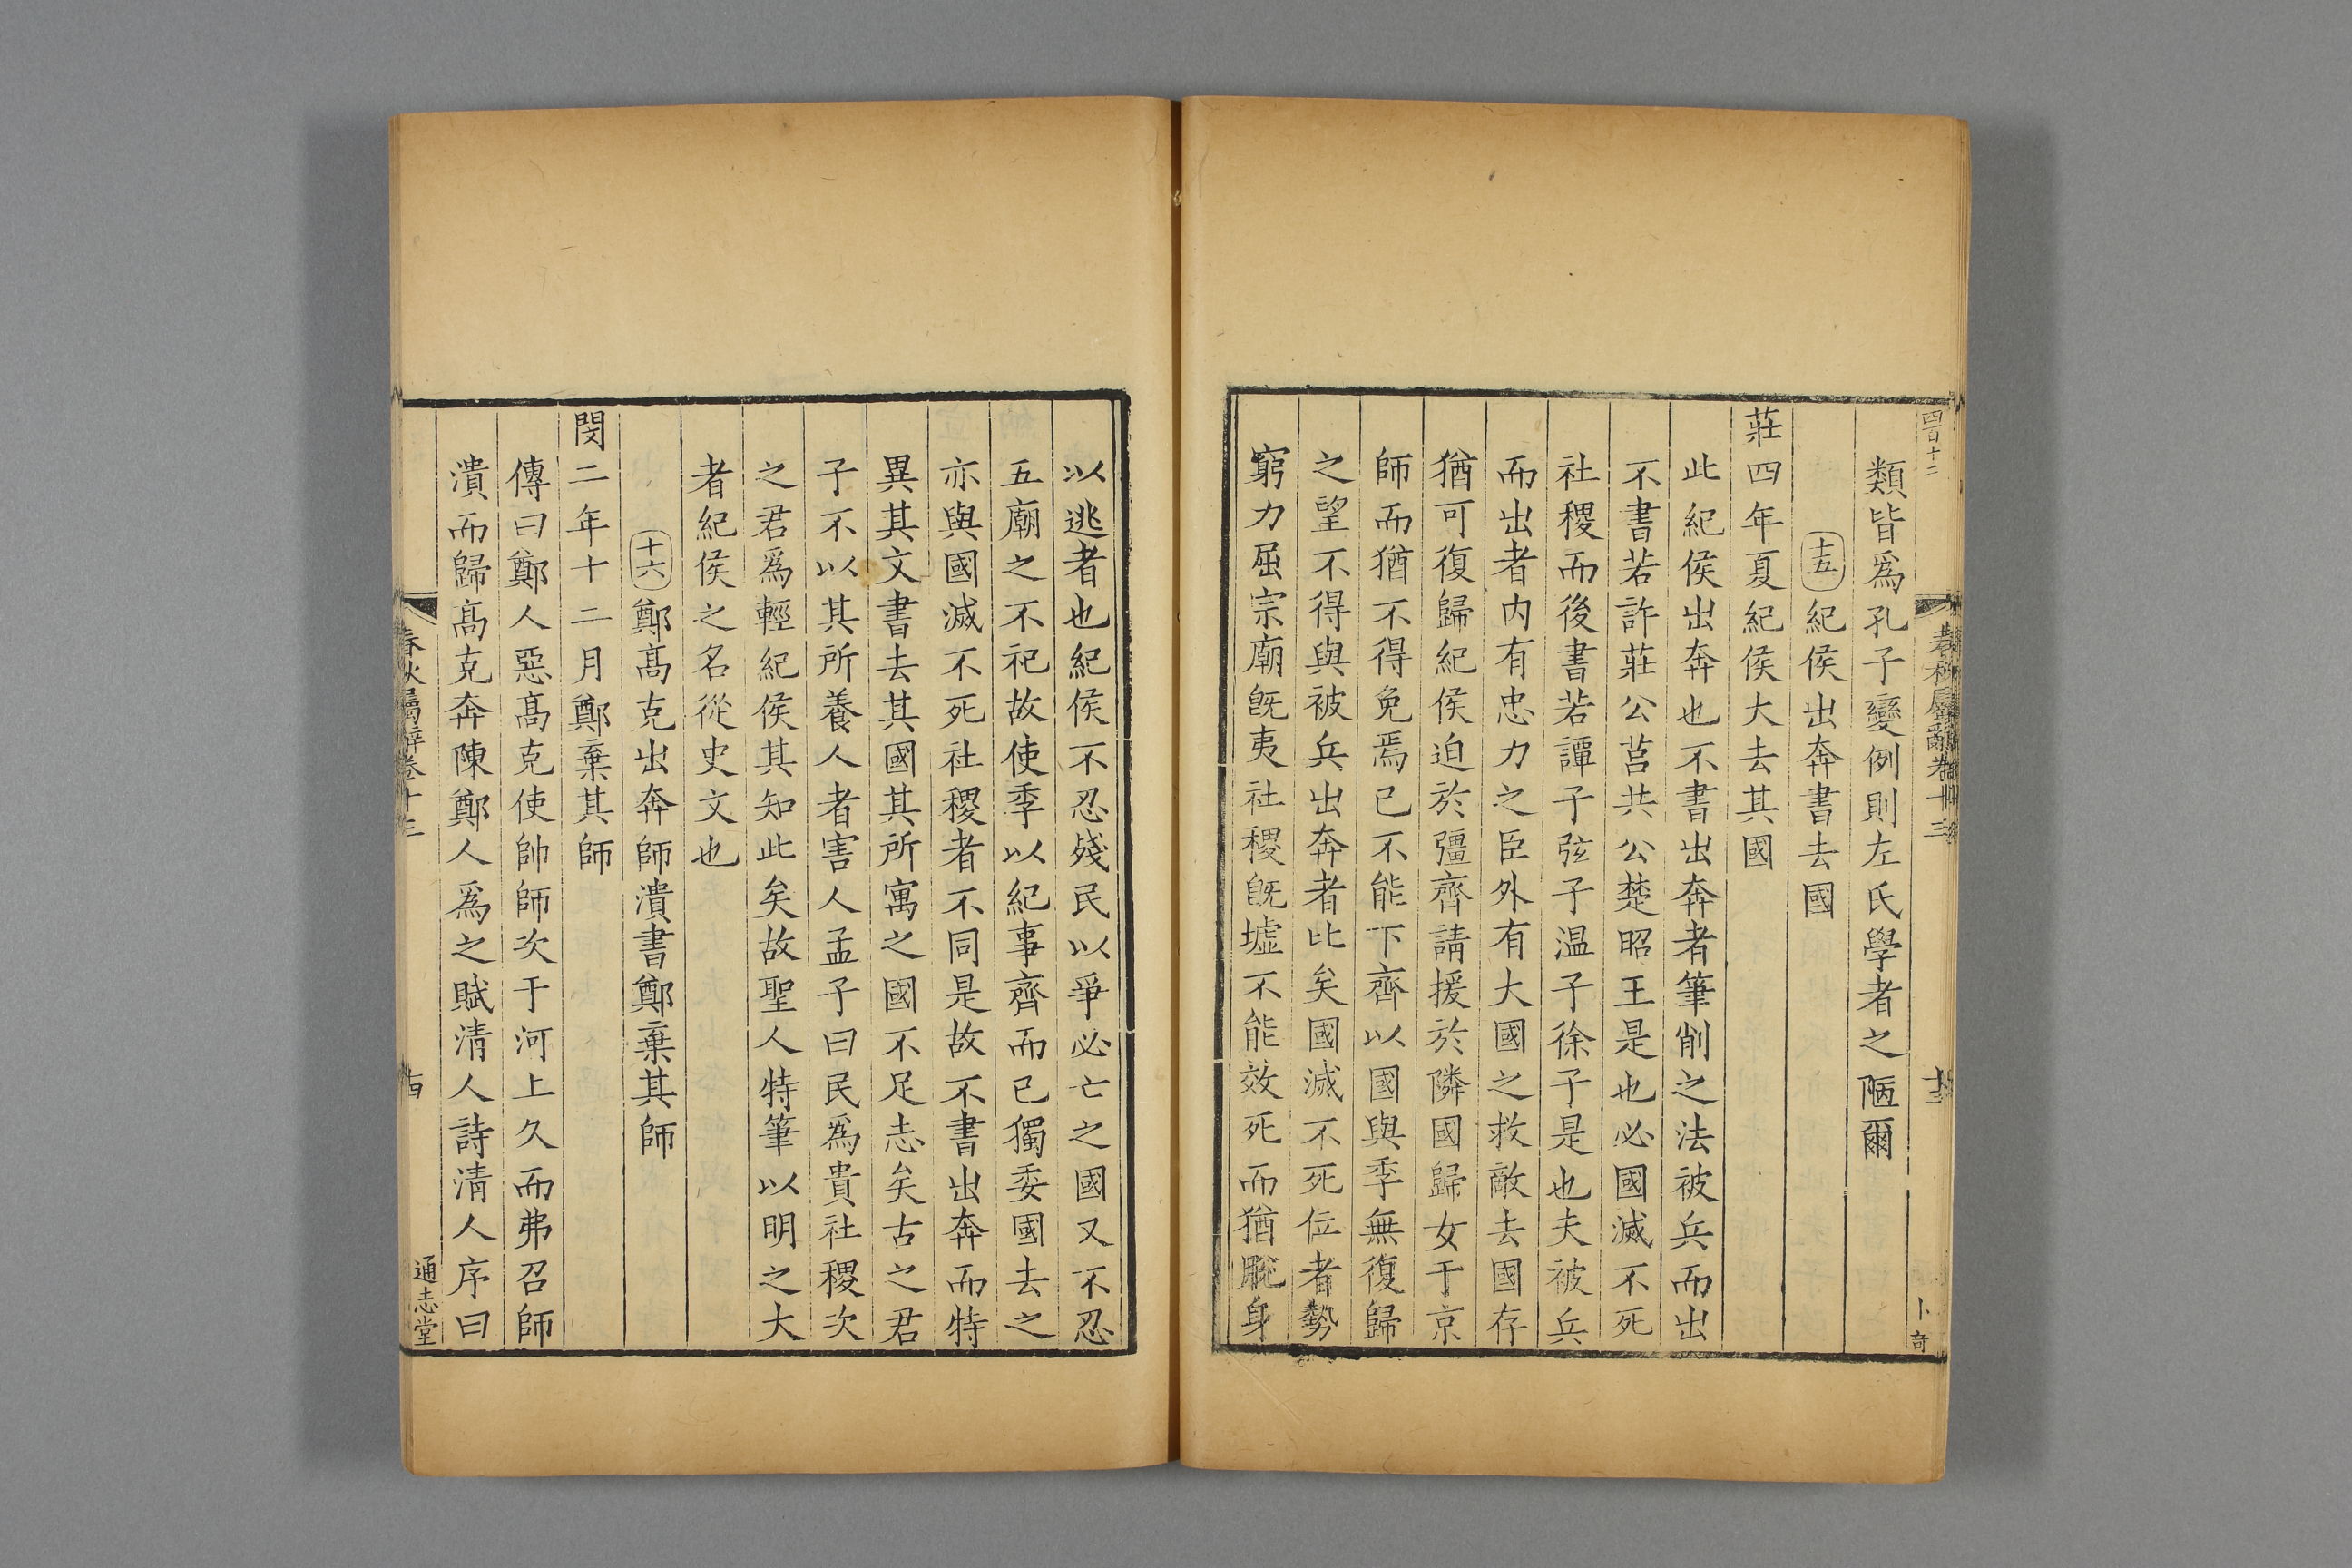 四百十二
春秋屬辭卷十三
十三
卜奇
類皆爲孔子變例則左氏學者之陋爾
十五紀侯出奔書去國
莊四年夏紀侯大去其國
此紀侯出奔也不書出奔者筆削之法被兵而出
不書若許莊公莒共公楚昭王是也必國滅不死
社稷而後書若譚子弦子温子徐子是也夫被兵
而出者内有忠力之臣外有大國之救敵去國存
猶可復歸紀侯迫於彊齊請援於隣國歸女于京
師而猶不得免焉已不能下齊以國與季無復歸
之望不得與被兵出奔者比矣國滅不死位者勢
窮力屈宗廟旣夷社稷旣墟不能效死而猶脫身
以逃者也紀侯不忍殘民以爭必亡之國又不忍
五廟之不祀故使季以紀事齊而已獨委國去之
亦與國滅不死社稷者不同是故不書出奔而特
異其文書去其國其所寓之國不足志矣古之君
子不以其所養人者害人孟子曰民爲貴社稷次
之君爲輕紀侯其知此矣故聖人特筆以明之大
者紀侯之名從史文也
十六鄭髙克出奔師潰書鄭棄其師
閔二年十二月鄭棄其師
傳曰鄭人惡髙克使帥師次于河上久而弗召師
潰而歸髙克奔陳鄭人爲之賦清人詩清人序曰
春秋屬辭卷十三
十四
通志堂